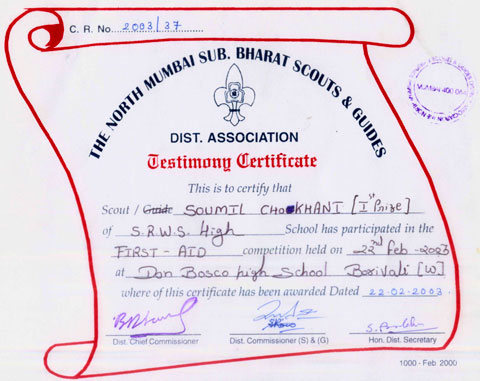 C. R. No. 2003/37
THE NORTH MUMBAI SUB. BHARAT SCOUTS & GUIDES
DIST. ASSOCIATION
Testimony Certificate
This is to certify that
Scout / Guide SOUMIL CHOKHANI [Ist Prize]
of S.R.W.S. High School has participated in the
FIRST - AID competition held on 22nd Feb - 2003
at Don Bosco high School Borivali [W]
where of this certificate has been awarded Dated 22-02-2003.
Dist. Chief Commissioner Dist. Commissioner (S) & (G) Hon. Dist. Secretary
1000 - Feb 2000